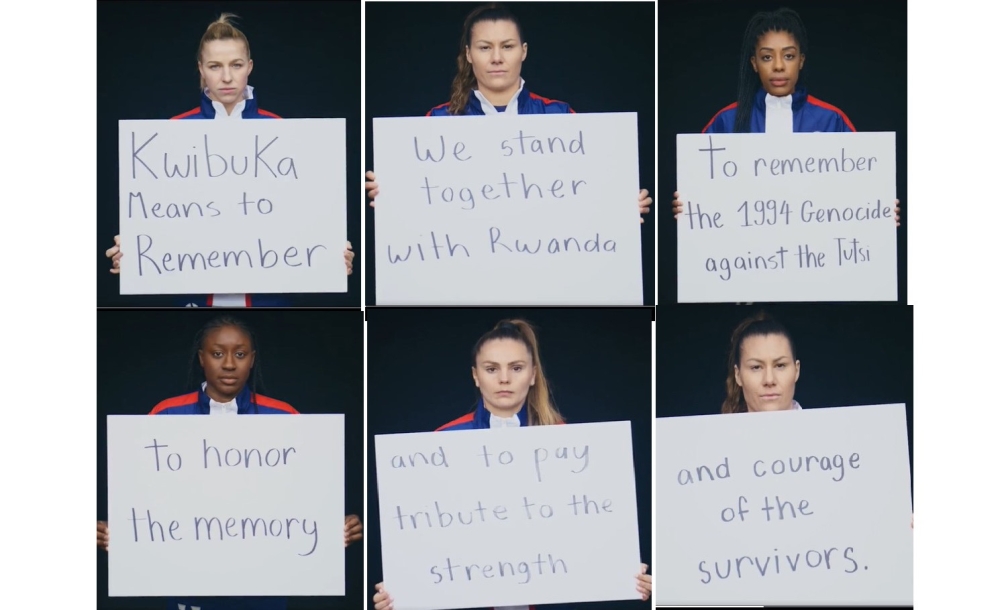 Kwibuka
Means to
Remember
We stand
together
with Rwanda
To remember
the 1994 Genocide
against the Tutsi
To honor
the memory
and to pay
tribute to the
strength
and courage
of the
survivors.